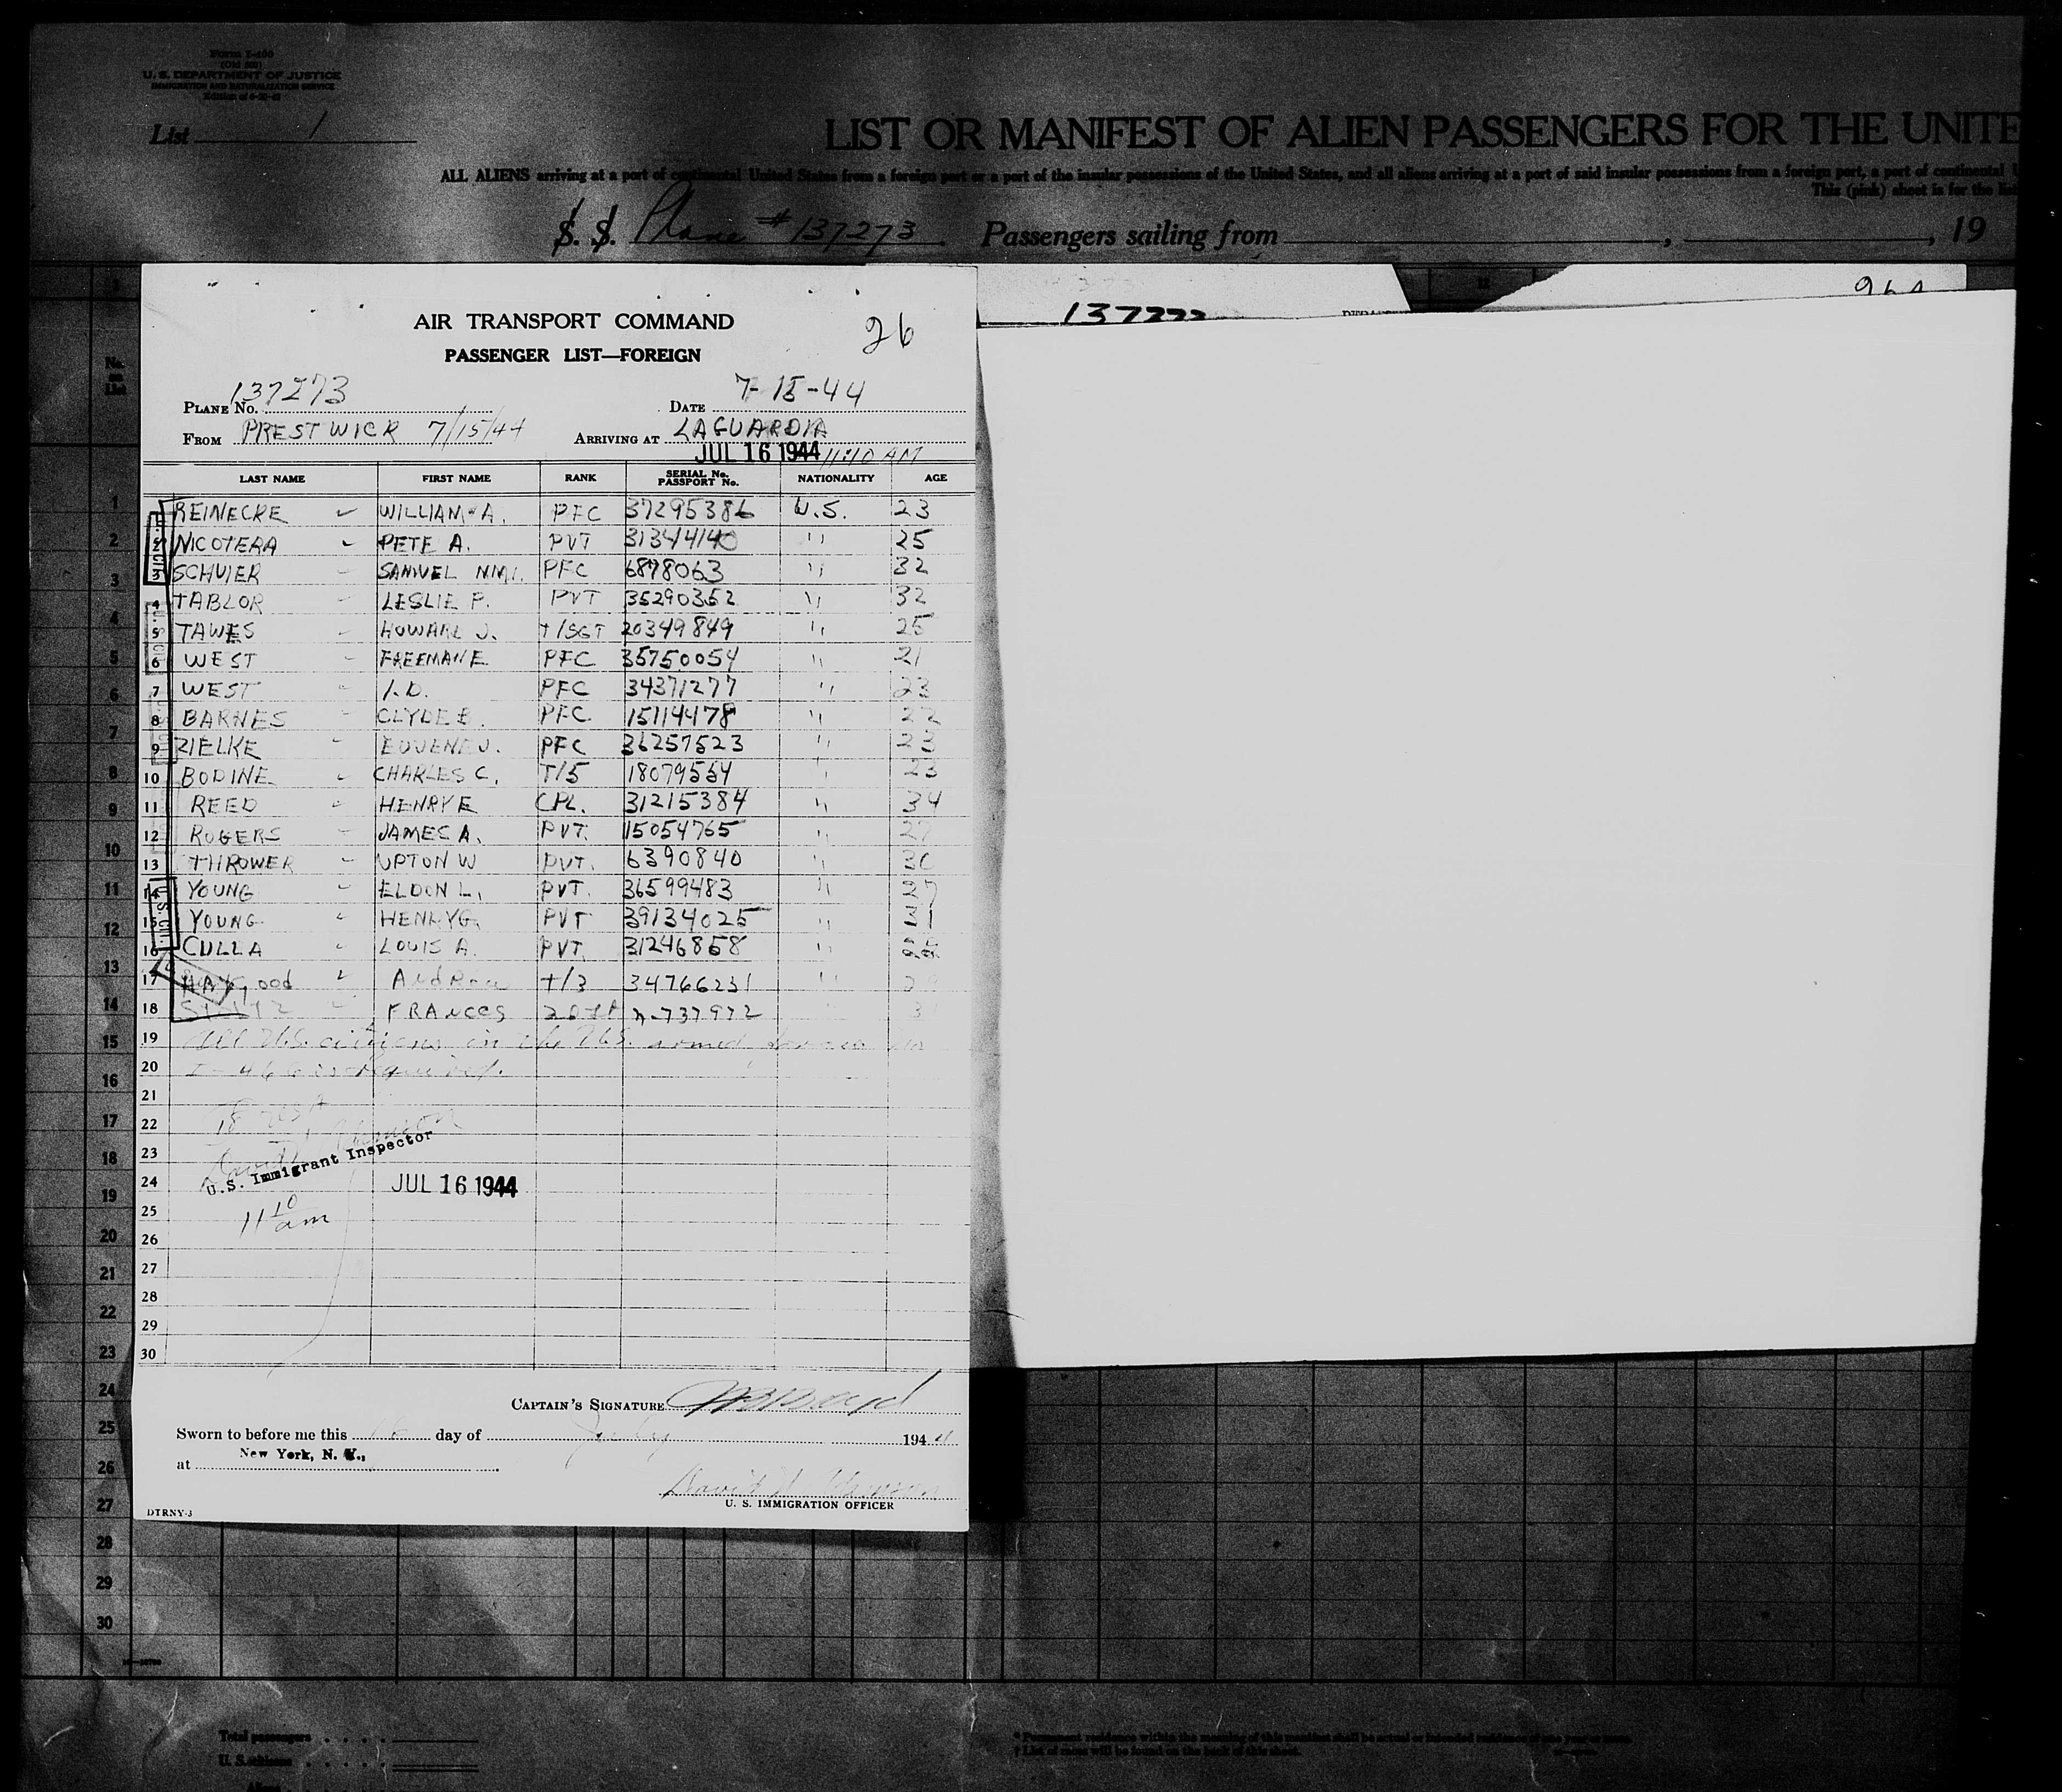 Form I-400
(Old 500)
U. S. DEPARTMENT OF JUSTICE
IMMIGRATION AND NATURALIZATION SERVICE
List 1
LIST OR MANIFEST OF ALIEN PASSENGERS FOR THE UNITE
ALL ALIENS arriving at a port of continental United States from a foreign port or a port of the insular possessions of the United States, and all aliens arriving at a port of said insular possessions from a foreign port, a port of continental
This (pink) sheet is for the
S. S. Plane # 137273. Passengers sailing from , , 19
AIR TRANSPORT COMMAND
26
PASSENGER LIST—FOREIGN
PLANE NO. 137273 DATE 7-15-44
FROM PRESTWICK 7/15/44 ARRIVING AT LAGUARDIA
JUL 16 1944 11:10 AM
LAST NAME FIRST NAME RANK SERIAL No. PASSPORT No. NATIONALITY AGE
1 REINECKE WILLIAM A. PFC 37295386 U.S. 23
2 NICOTERA PETE A. PVT 31344140 " 25
3 SCHUIER SAMUEL NMI. PFC 6878063 " 32
4 TABLOR LESLIE P. PVT 35290352 " 32
5 TAWES HOWARD J. T/SGT 20349849 " 25
6 WEST FREEMAN E PFC 35750054 " 21
7 WEST I.D. PFC 34371277 " 23
8 BARNES CLYDE E. PFC. 15114478 " 22
9 ZIELKE EUGENE J. PFC 36257523 " 23
10 BODINE CHARLES C. T/5 18079554 " 23
11 REED HENRY E CPL. 31215384 " 34
12 ROGERS JAMES A. PVT. 15054765 " 27
13 THROWER UPTON W PVT. 6390840 " 30
14 YOUNG ELDON L. PVT. 36599483 " 27
15 YOUNG HENRY G. PVT 39134025 " 31
16 CULLA LOUIS A. PVT. 31246858 "
17 HAYgood Andrew T/3 34766231 "
18 FRANCES 2d Lt N-737972
19 All U.S. citizens in the U.S. armed
20 I-466 is required.
21
22 18 USA
23
24
25
26
27
28
29
30
U.S. Immigrant Inspector
JUL 16 1944
11 10 am
CAPTAIN'S SIGNATURE
Sworn to before me this 16 day of July 1944
at New York, N. Y.,
David
U. S. IMMIGRATION OFFICER
DTRNY-3
137273
Total passengers
U. S. citizens
Aliens
* Permanent residence within the meaning of this manifest shall be actual or intended residence of one year or more.
† List of races will be found on the back of this sheet.